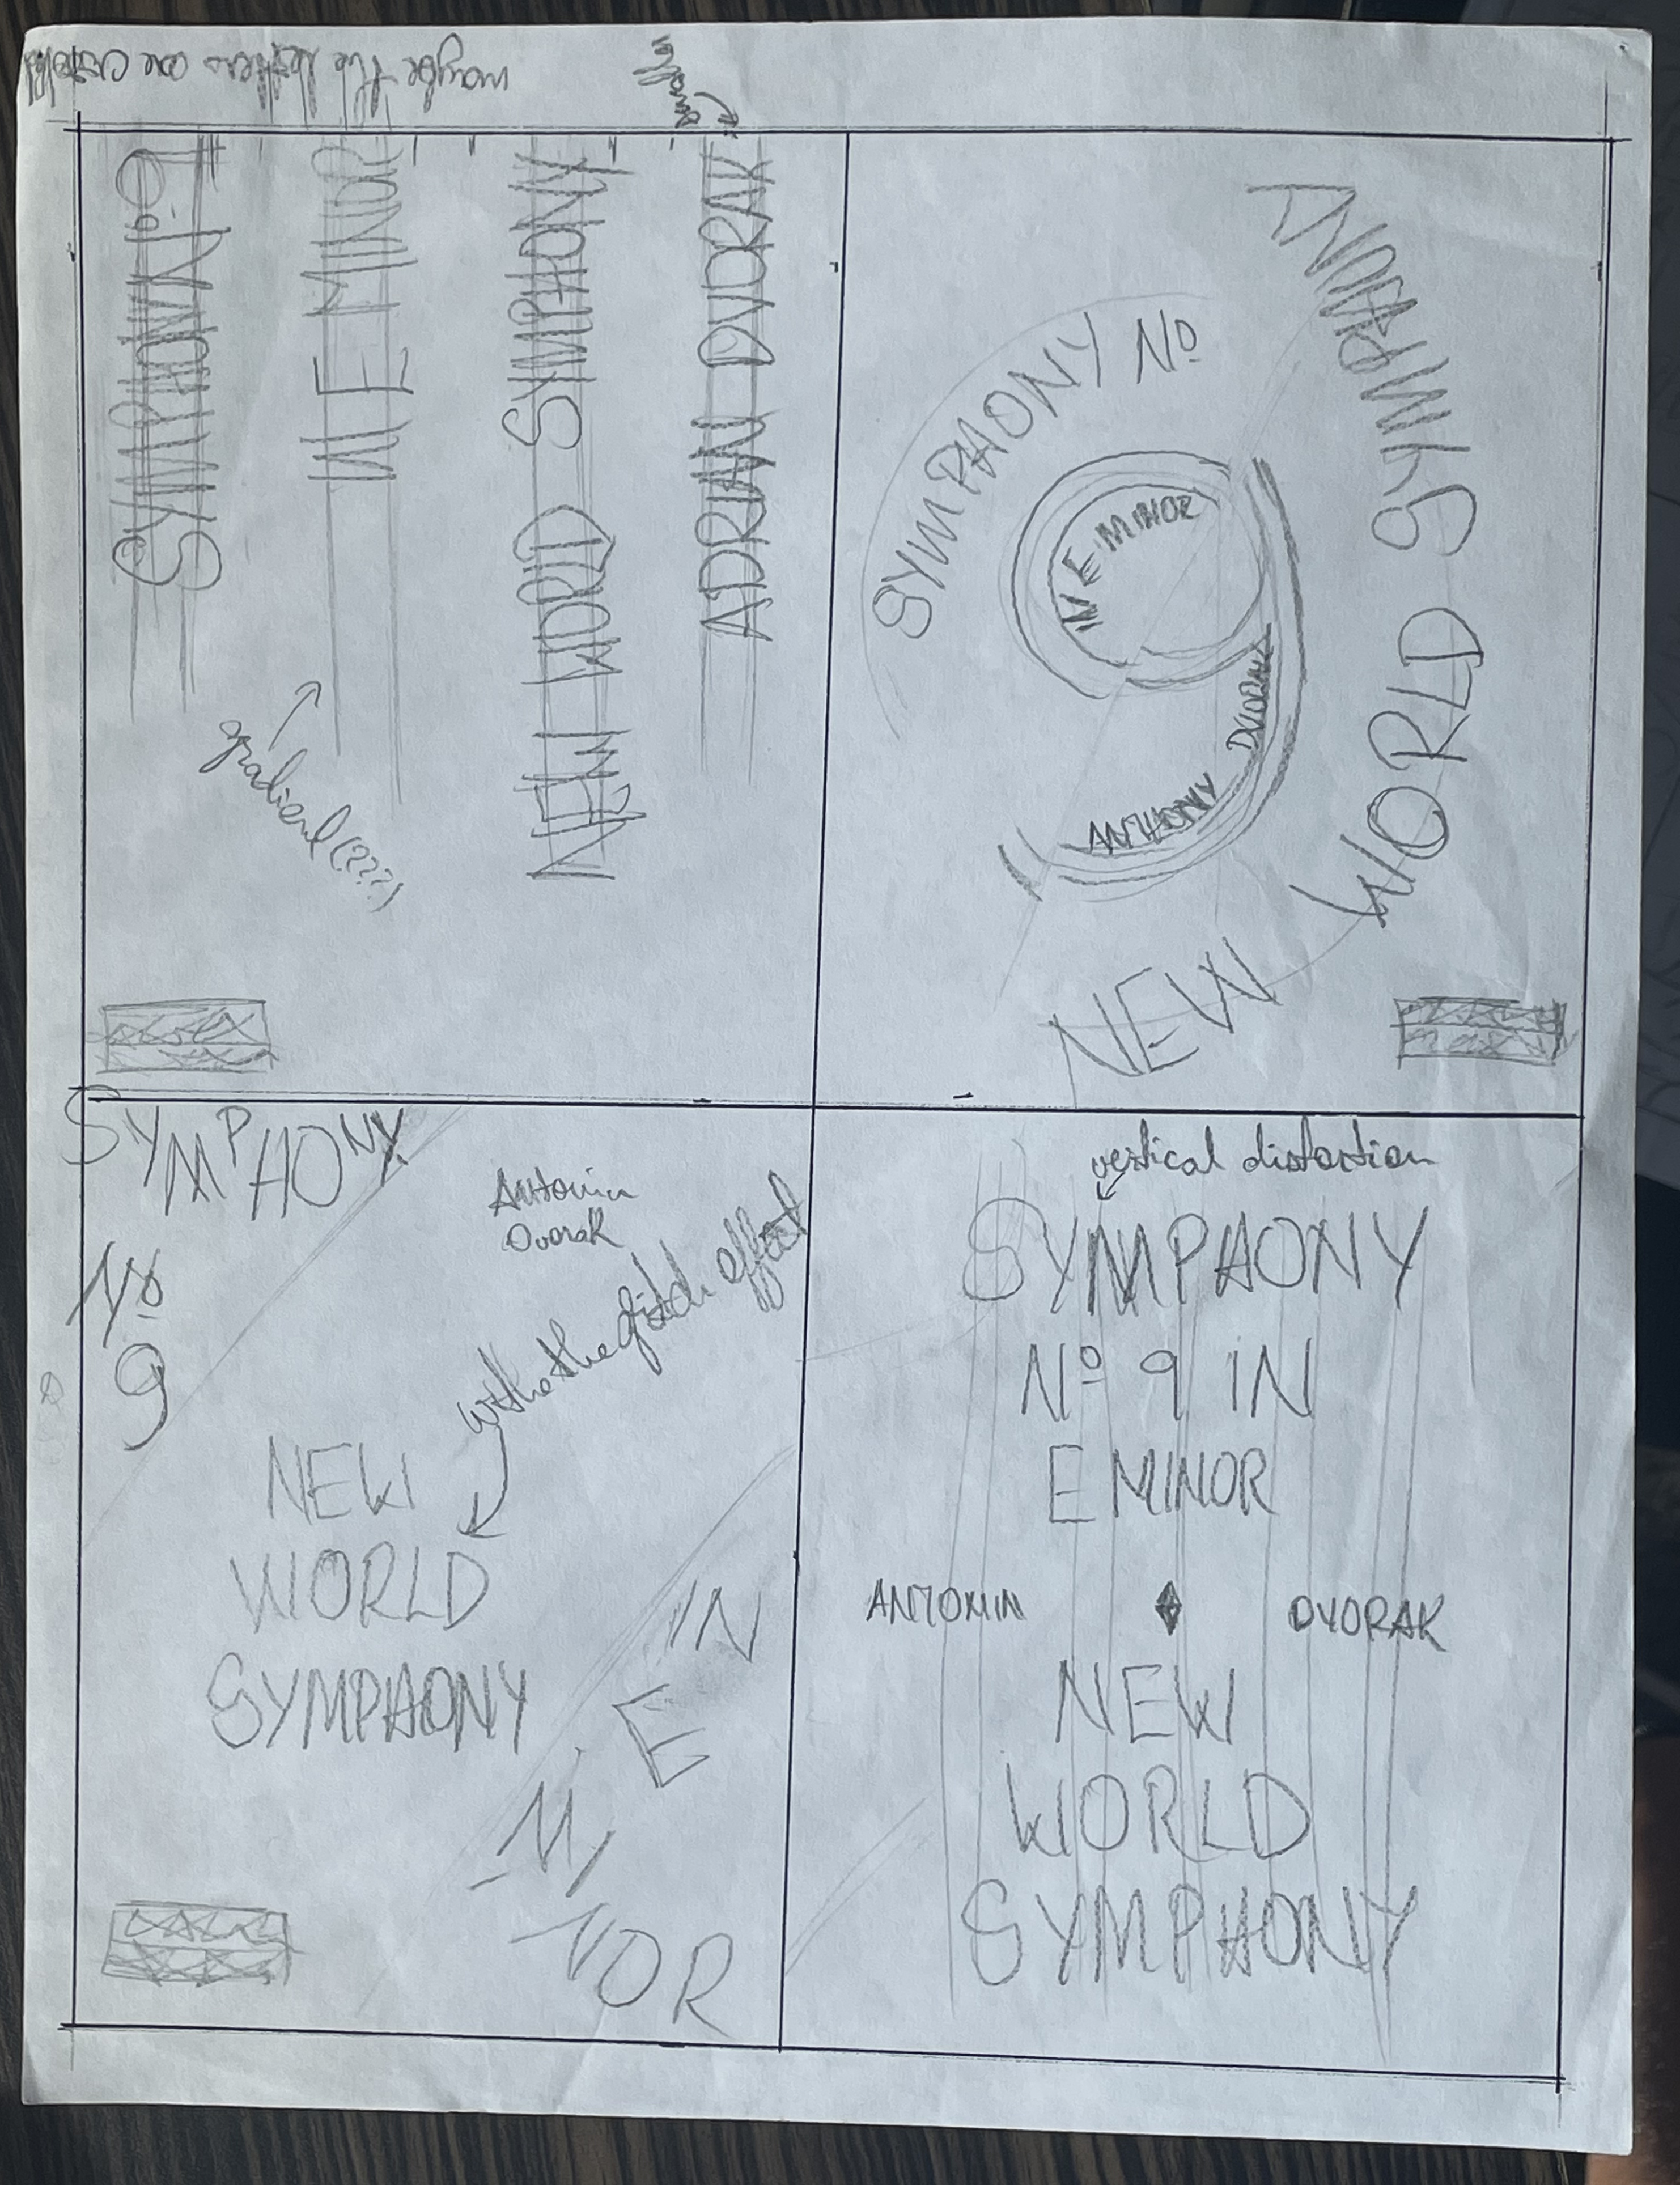 maybe the letters are
smaller
SYMPHONY Nº 9
IN E MINOR
NEW WORLD SYMPHONY
ADRIAN DVORAK
gradient (???)
SYMPHONY Nº
IN E MINOR
ANTHONY DVORAK
NEW WORLD SYMPHONY
SYMPHONY
Nº
9
Antonin
Dvorak
with the glitch effect
NEW
WORLD
SYMPHONY
IN
E
MINOR
vertical distortion
SYMPHONY
Nº 9 IN
E MINOR
ANTONIN DVORAK
NEW
WORLD
SYMPHONY